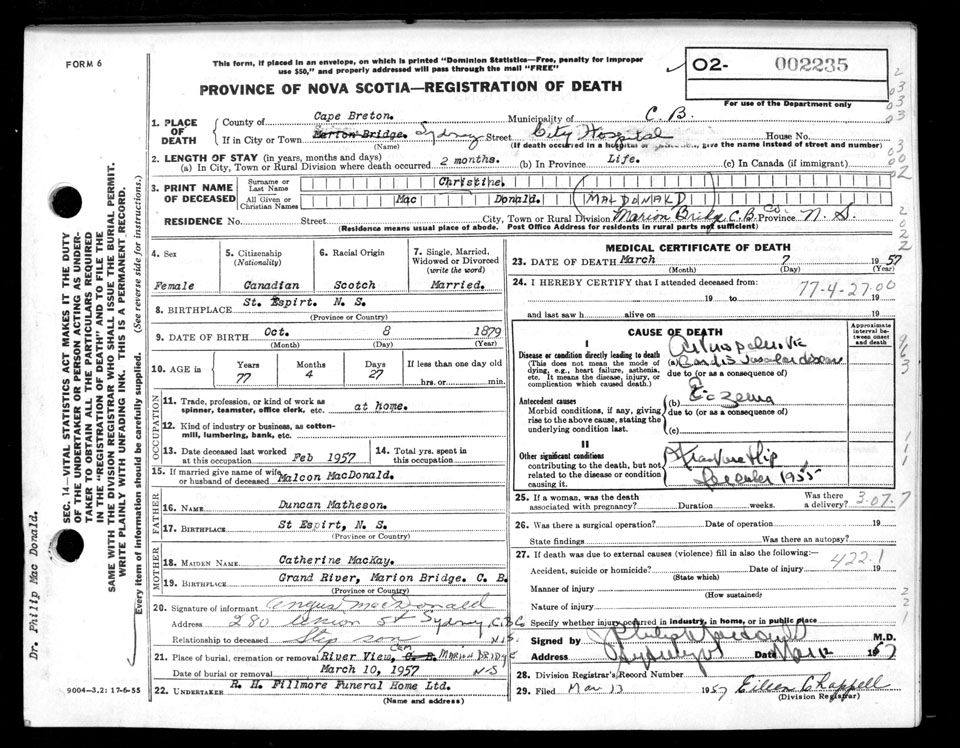 FORM 6
This form, if placed in an envelope, on which is printed "Dominion Statistics—Free, penalty for improper
use $50," and properly addressed will pass through the mail "FREE"
PROVINCE OF NOVA SCOTIA—REGISTRATION OF DEATH
O2- 002235
For use of the Department only
1. PLACE OF DEATH
County of Cape Breton. Municipality of C. B.
If in City or Town Marion Bridge. Sydney Street City Hospital House No.
(Name) (If death occurred in a hospital or institution, give the name instead of street and number)
2. LENGTH OF STAY (in years, months and days)
(a) In City, Town or Rural Division where death occurred 2 months. (b) In Province Life. (c) In Canada (if immigrant)
3. PRINT NAME OF DECEASED
Surname or Last Name Christine.
All Given or Christian Names Mac Donald. (MACDONALD)
RESIDENCE No. Street City, Town or Rural Division Marion Bridge C. B. Co. Province N. S.
(Residence means usual place of abode. Post Office Address for residents in rural parts not sufficient)
4. Sex Female
5. Citizenship (Nationality) Canadian
6. Racial Origin Scotch
7. Single, Married, Widowed or Divorced (write the word) Married.
8. BIRTHPLACE St. Espirt. N. S.
(Province or Country)
9. DATE OF BIRTH Oct. 8 1879
(Month) (Day) (Year)
10. AGE in Years 77 Months 4 Days 27 If less than one day old
hrs. or min.
OCCUPATION
11. Trade, profession, or kind of work as
spinner, teamster, office clerk, etc. at home.
12. Kind of industry or business, as cotton-
mill, lumbering, bank, etc.
13. Date deceased last worked
at this occupation Feb 1957
14. Total yrs. spent in
this occupation
15. If married give name of wife
or husband of deceased Malcon MacDonald.
FATHER
16. NAME Duncan Matheson.
17. BIRTHPLACE St Espirt, N. S.
(Province or Country)
MOTHER
18. MAIDEN NAME Catherine MacKay.
19. BIRTHPLACE Grand River, Marion Bridge. C. B.
(Province or Country)
20. Signature of informant Angus MacDonald
Address 280 Union St Sydney, C.B. Co
Relationship to deceased Step son N.S.
21. Place of burial, cremation or removal River View, Cem C. B. MARION BRIDGE
Date of burial or removal March 10, 1957 N-S
22. UNDERTAKER R. H. Fillmore Funeral Home Ltd.
(Name and address)
MEDICAL CERTIFICATE OF DEATH
23. DATE OF DEATH March 7 1957
(Month) (Day) (Year)
24. I HEREBY CERTIFY that I attended deceased from: 77-4-27.00
19 to 19
and last saw h alive on 19
CAUSE OF DEATH
Approximate interval between onset and death
I
Disease or condition directly leading to death
(This does not mean the mode of
dying, e.g., heart failure, asthenia,
etc. It means the disease, injury, or
complication which caused death.)
(a)
due to (or as a consequence of)
Antecedent causes
Morbid conditions, if any, giving
rise to the above cause, stating the
underlying condition last.
(b) Eczema
due to (or as a consequence of)
(c)
II
Other significant conditions
contributing to the death, but not
related to the disease or condition
causing it.
Fracture Hip
December 1955
25. If a woman, was the death
associated with pregnancy? Duration weeks. Was there a delivery? 3-07-7
26. Was there a surgical operation? Date of operation 19
State findings Was there an autopsy?
27. If death was due to external causes (violence) fill in also the following:
Accident, suicide or homicide? Date of injury 19
422.1
(State which)
Manner of injury
(How sustained)
Nature of injury
Specify whether injury occurred in industry, in home, or in public place
Signed by Philip Macdonald M.D.
Address Date Mar 12 1957
28. Division Registrar's Record Number
29. Filed Mar 13 1957 Eileen Chappell
(Division Registrar)
9004-3.2: 17-6-55
SEC. 14—VITAL STATISTICS ACT MAKES IT THE DUTY
OF THE UNDERTAKER OR PERSON ACTING AS UNDER-
TAKER TO OBTAIN ALL THE PARTICULARS REQUIRED
IN THE "REGISTRATION OF DEATH" AND TO FILE THE
SAME WITH THE DIVISION REGISTRAR WHO SHALL ISSUE THE BURIAL PERMIT.
WRITE PLAINLY WITH UNFADING INK. THIS IS A PERMANENT RECORD.
Every item of information should be carefully supplied. (See reverse side for instructions.)
Dr. Philip Mac Donald.